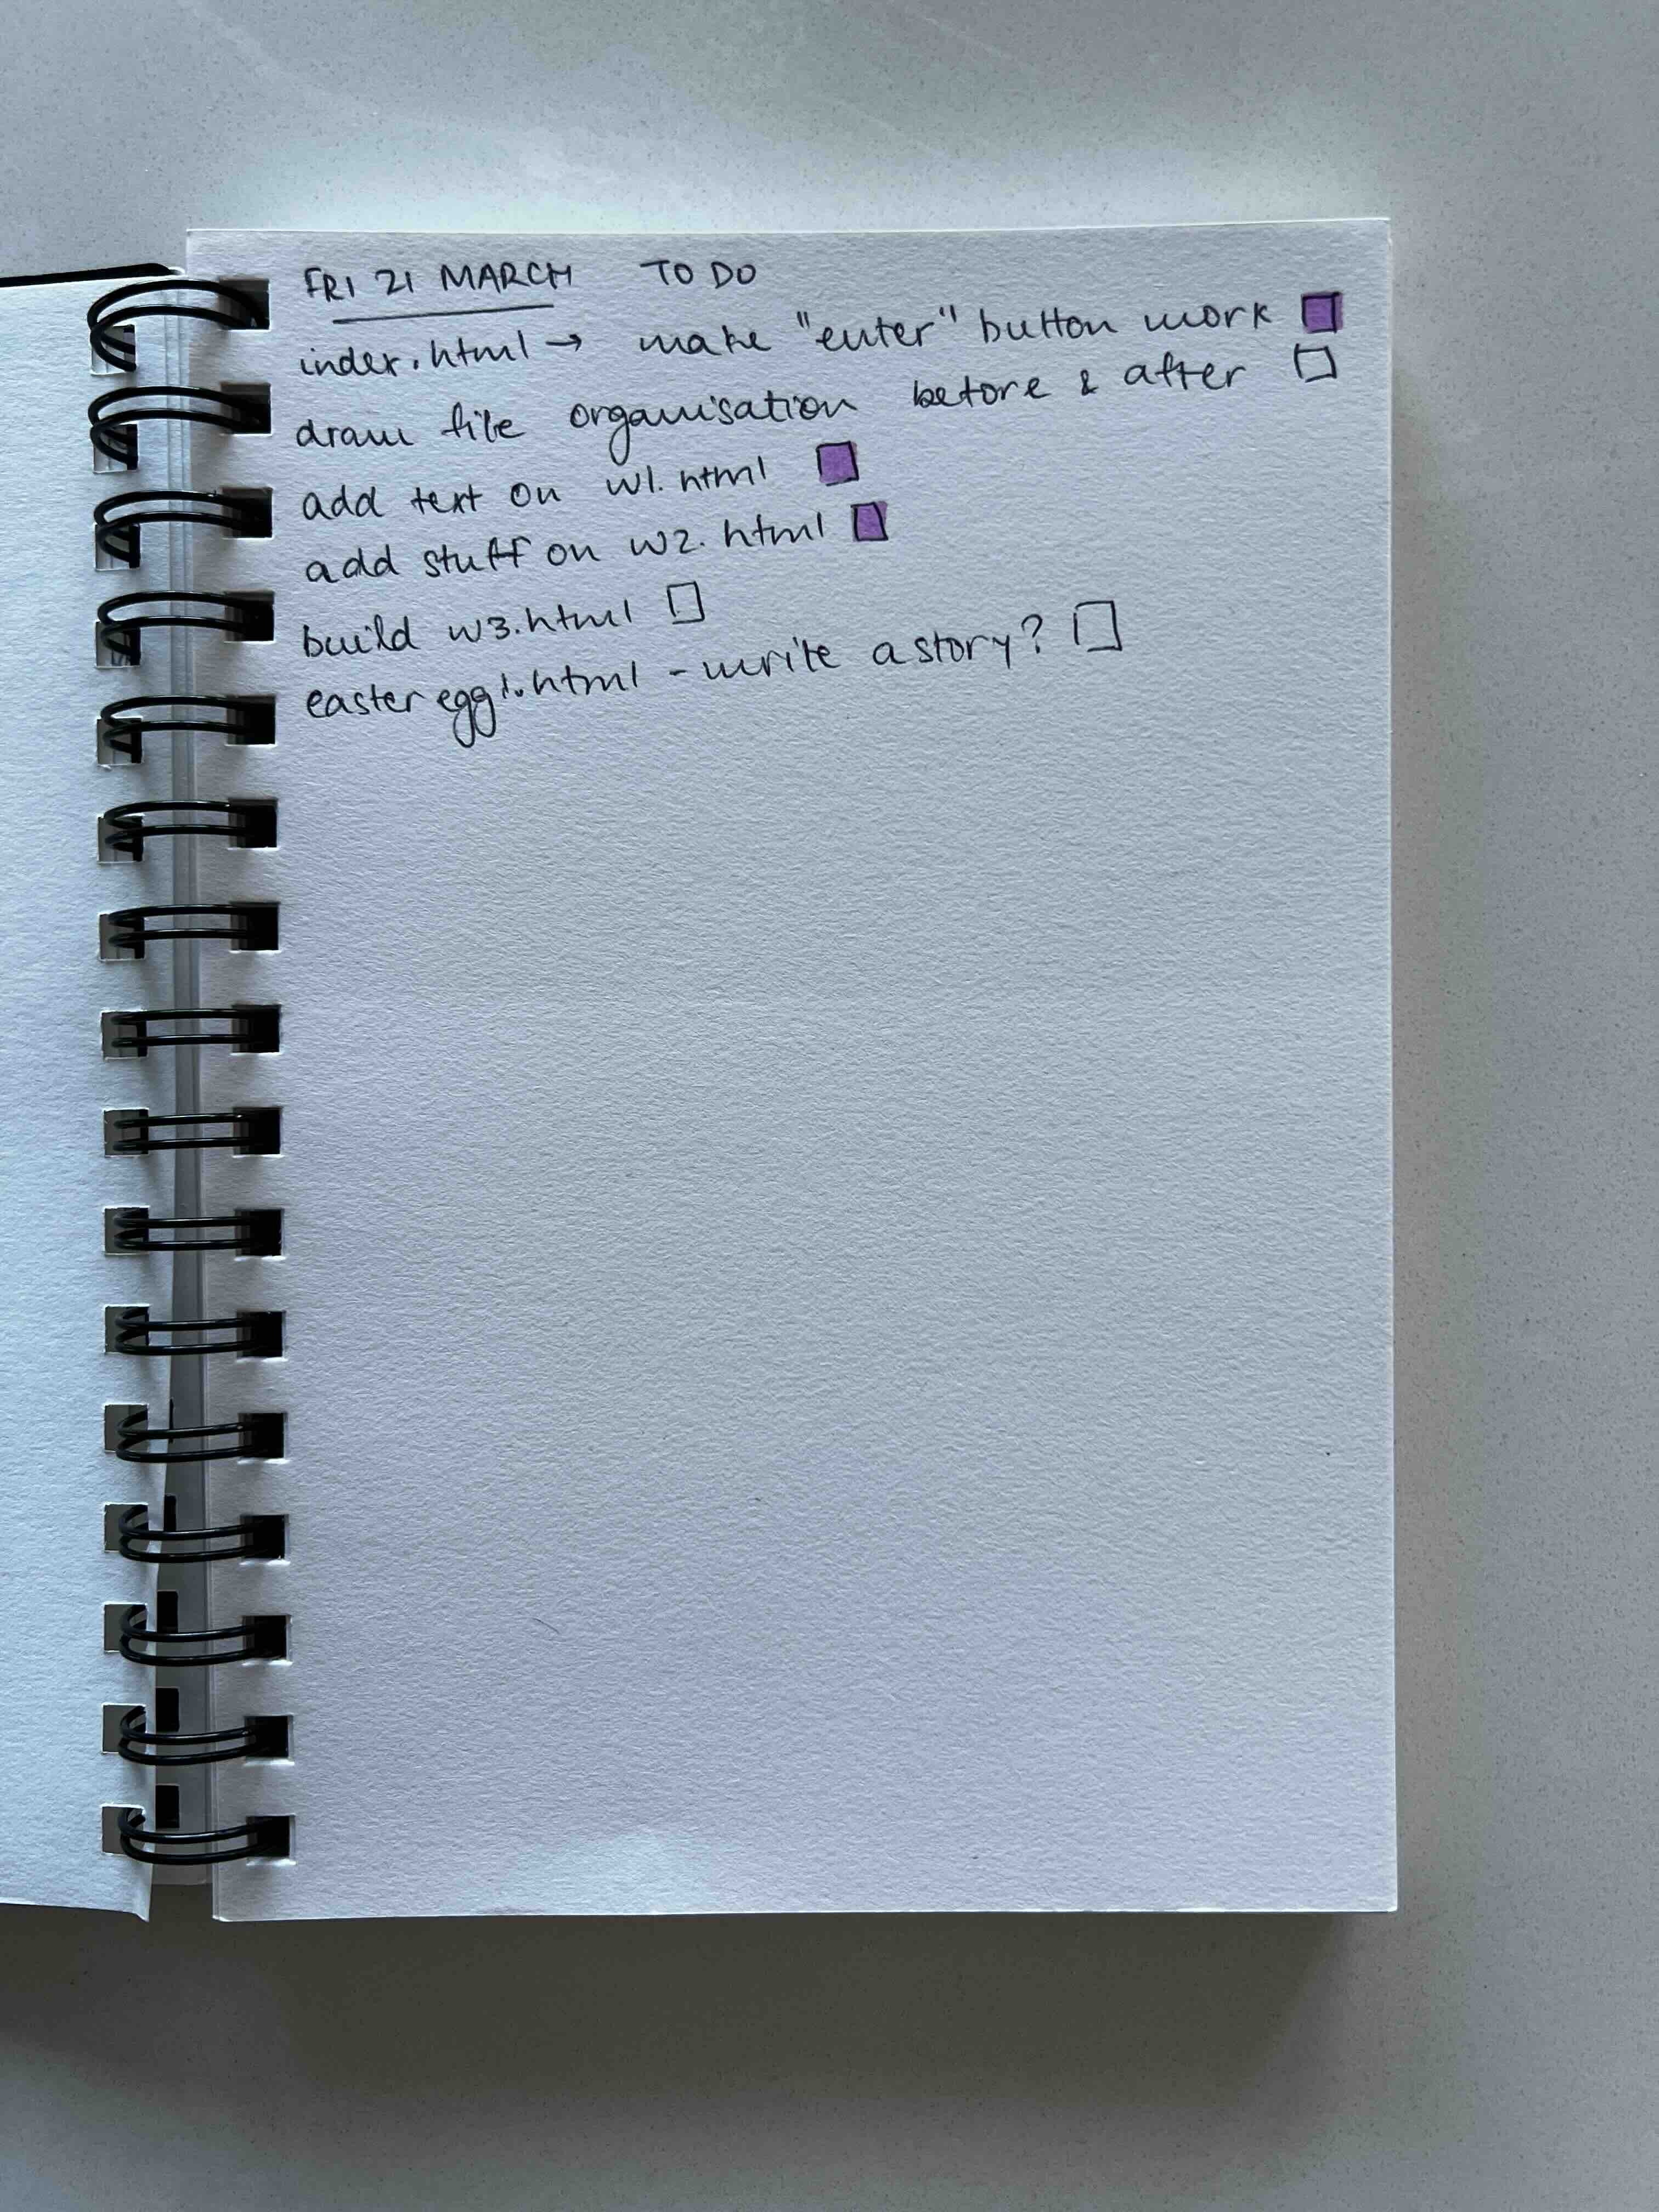 FRI 21 MARCH TO DO
index.html → make "enter" button work
draw file organisation before & after
add text on w1.html
add stuff on w2.html
build w3.html
easteregg1.html - write a story?